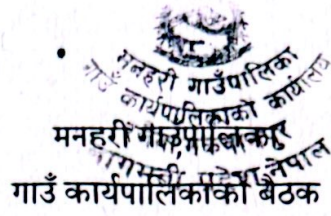 मनहरी गाउँपालिका
गाउँ कार्यपालिकाको कार्यालय
मनहरी गाउँपालिका
नेपाल
गाउँ कार्यपालिकाको बैठक